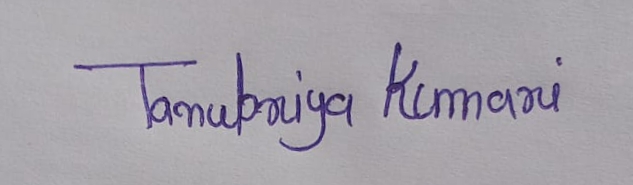 Tanupriya Kumari